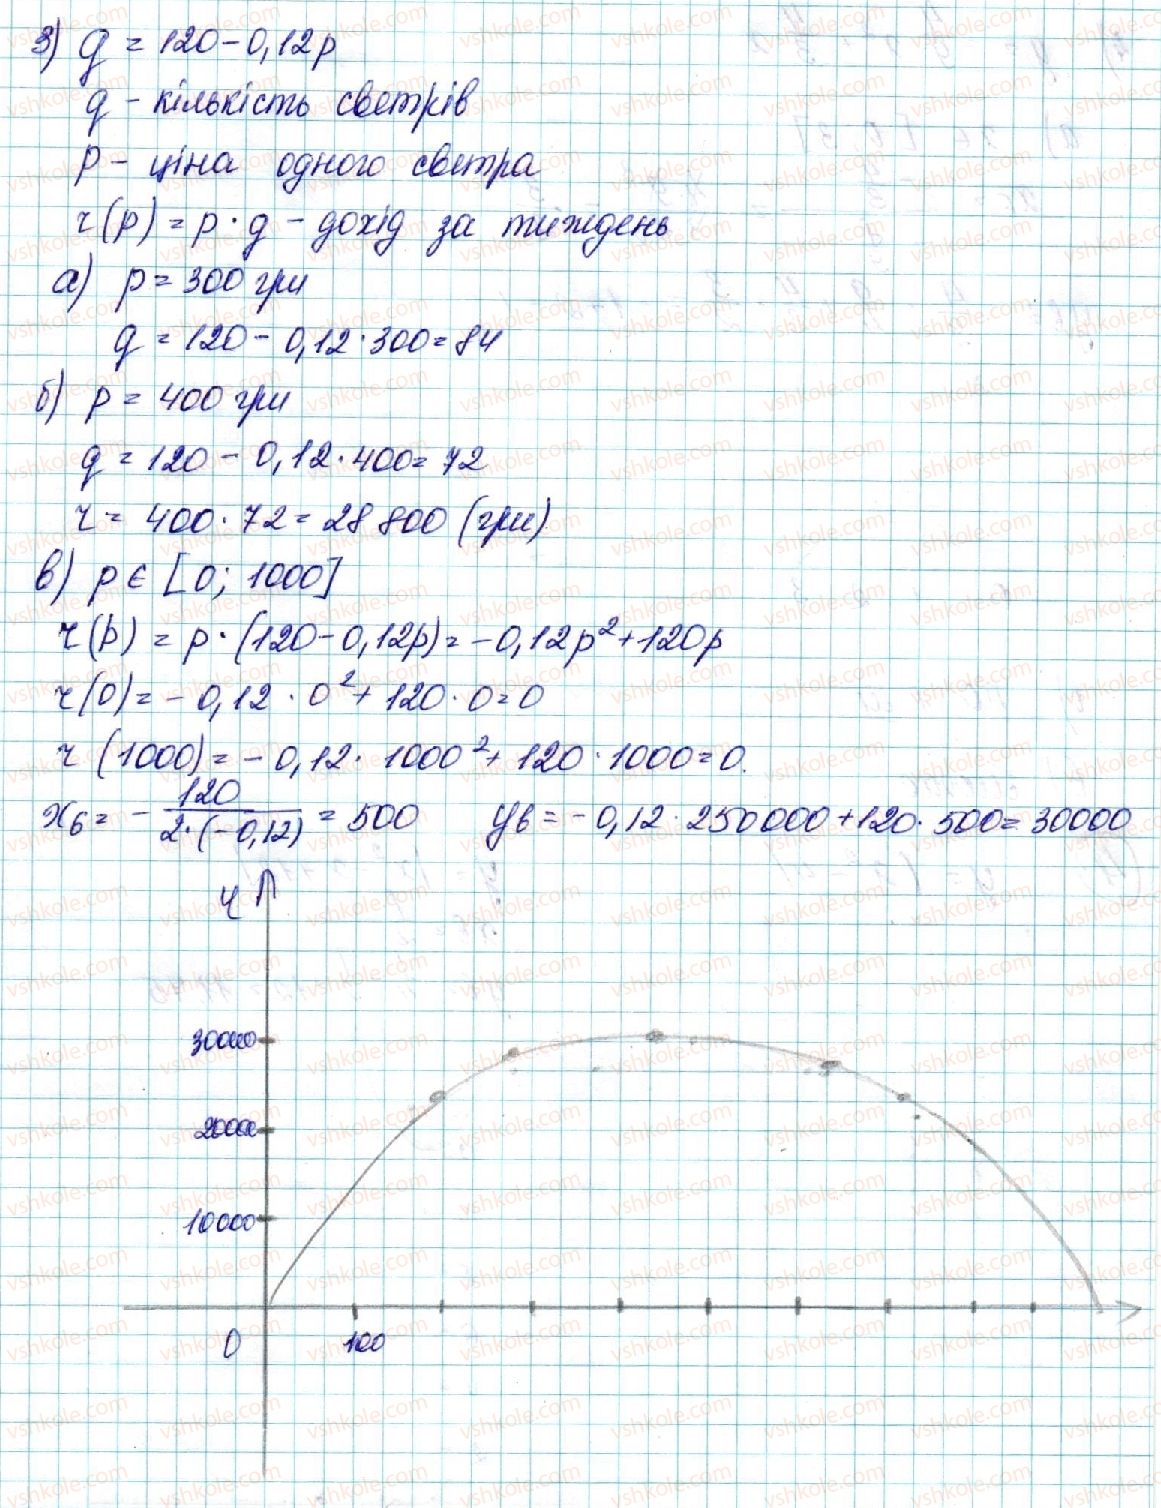 3) q = 120 - 0,12p
q - кількість светрів
p - ціна одного светра
r(p) = p · q - дохід за тиждень
а) p = 300 грн
q = 120 - 0,12 · 300 = 84
б) p = 400 грн
q = 120 - 0,12 · 400 = 72
r = 400 · 72 = 28 800 (грн)
в) p ∈ [0; 1000]
r(p) = p · (120 - 0,12p) = -0,12p² + 120p
r(0) = - 0,12 · 0² + 120 · 0 = 0
r (1000) = - 0,12 · 1000² + 120 · 1000 = 0.
x в = - 120 / 2·(-0,12) = 500 y в = - 0,12 · 250000 + 120 · 500 = 30000
ч
30000
20000
10000
0 100
vshkole.com